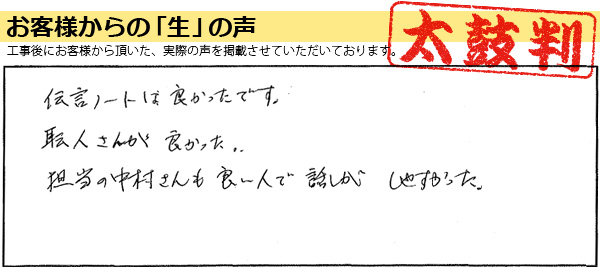 お客様からの「生」の声
太鼓判
工事後にお客様から頂いた、実際の声を掲載させていただいております。
伝言ノートは良かったです。
職人さんが 良かった..
担当の中村さんも良い人で 話しが しやすかった。